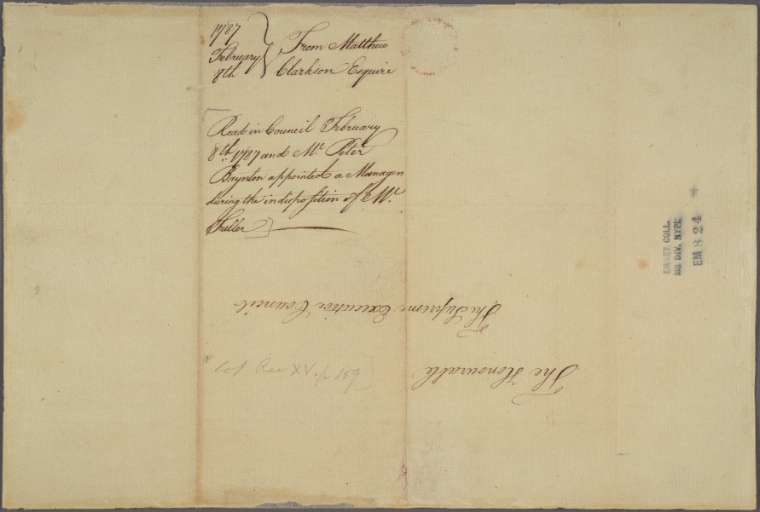 1787
February
8th
From Matthew
Clarkson Esquire
Read in Council February
8th. 1787 and Mr. Peter
Baynton appointed a Manager
during the indisposition of Mr.
Fuller
The Honourable
The Supreme Executive Council
Col Rec XV. p 159
EMMET COLL.
MS DIV. NYPL
EM 824